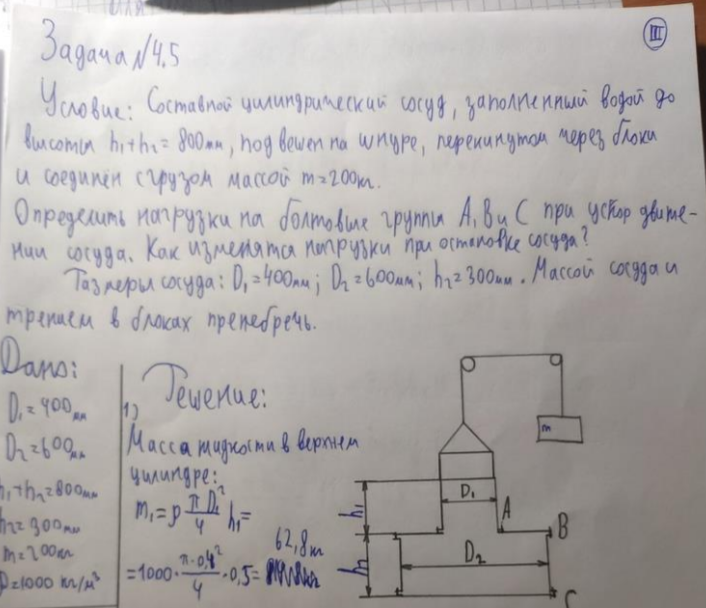 III
Задача №4.5
Условие: Составной цилиндрический сосуд, заполненный водой до
высоты h₁+h₂=800мм, подвешен на шнуре, перекинутом через блоки
и соединен с грузом массой m=200кг.
Определить нагрузки на болтовые группы A, B и C при ускор движе-
нии сосуда. Как изменятся нагрузки при остановке сосуда?
Размеры сосуда: D₁=400мм; D₂=600мм; h₂=300мм. Массой сосуда и
трением в блоках пренебречь.
Дано:
D₁=400мм
D₂=600мм
h₁+h₂=800мм
h₂=300мм
m=200кг
ρ=1000 кг/м³
Решение:
1)
Масса жидкости в верхнем
цилиндре:
m₁=ρ πD₁²/4 h₁=
=1000·π·0,4²/4·0,5= 62,8кг
m
D₁
h₁
A
B
D₂
h₂
C